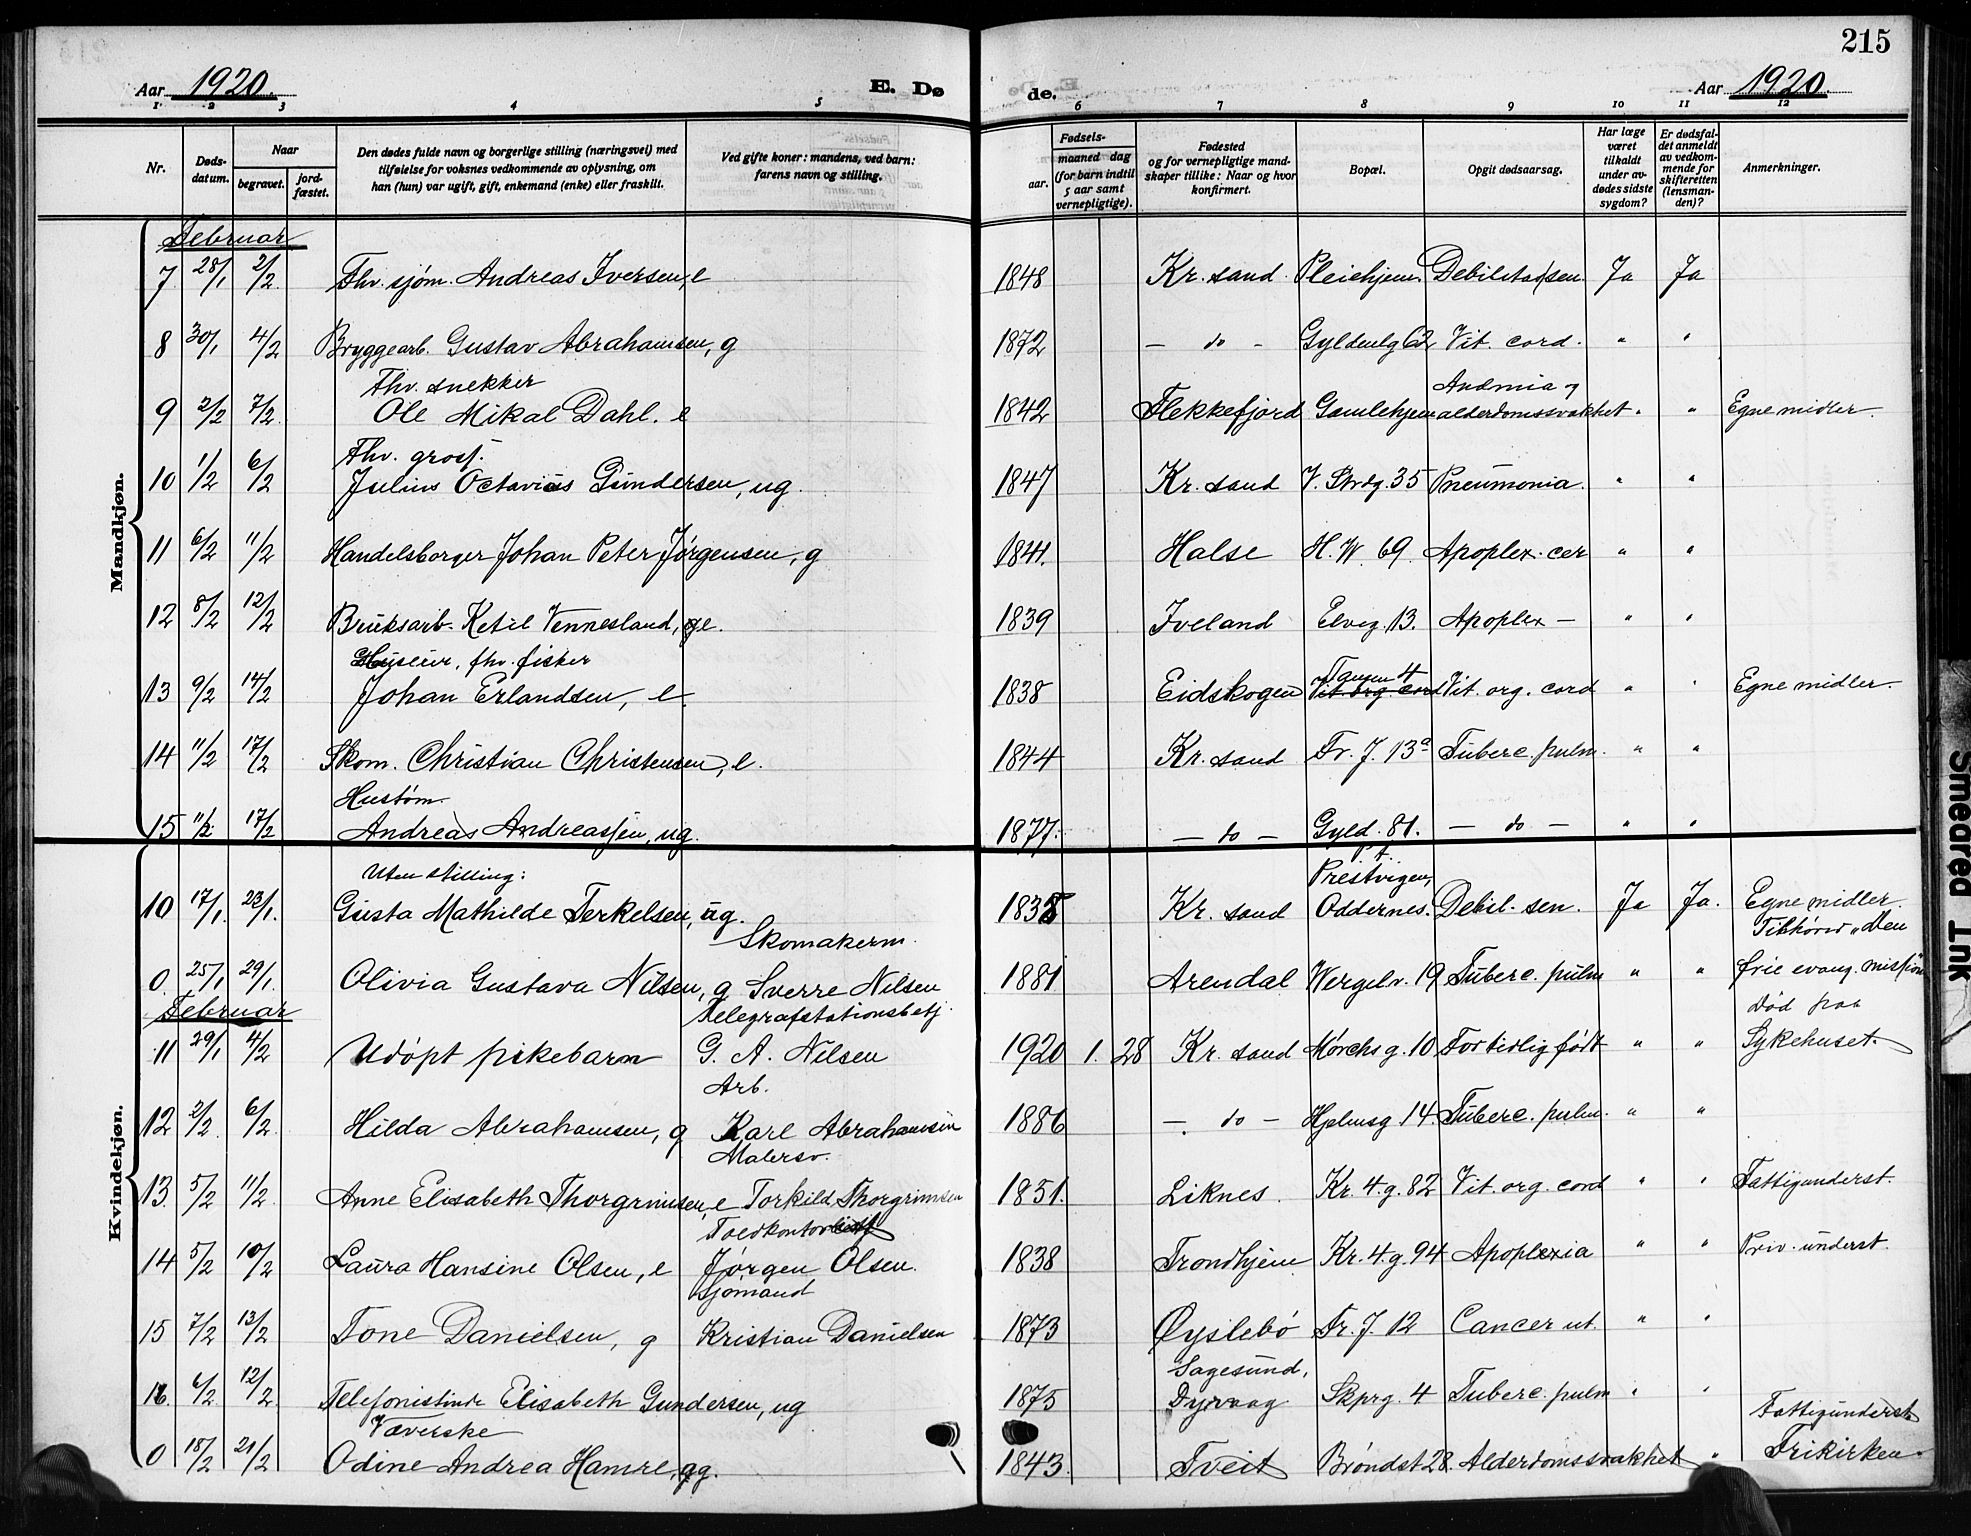 215
Aar 1920. E. Dø de. Aar 1920.
1 2 3 4 5 6 7 8 9 10 11 12
Nr. Døds-datum. Naar begravet. jord-fæstet. Den dødes fulde navn og borgerlige stilling (næringsvei) med tilføielse for voksnes vedkommende av oplysning, om han (hun) var ugift, gift, enkemand (enke) eller fraskilt. Ved gifte koner: mandens, ved barn: farens navn og stilling. Fødsels- aar. maaned dag (for barn indtil 5 aar samt vernepligtige). Fødested og for vernepligtige mandskaper tillike: Naar og hvor konfirmert. Bopæl. Opgit dødsaarsag. Har læge været tilkaldt under avdødes sidste sygdom? Er dødsfaldet anmeldt av vedkommende for skifteretten (lensmanden)? Anmerkninger.
Mandkjøn.
Februar
7 28/1 2/2 Fhv. sjøm. Andreas Iversen, e 1848 Kr. sand Pleiehjem. Debilitas sen. Ja Ja
8 30/1 4/2 Bryggearb. Gustav Abrahamsen, g 1872 — do — Gyldenlg 62 Vit. cord. " "
Fhv. snekker Anæmia og
9 2/2 7/2 Ole Mikal Dahl. e 1842 Flekkefjord Gamlehjem alderdomssvakhet " " Egne midler.
Fhv. gross.
10 1/2 6/2 Julius Octavius Gundersen, ug. 1847 Kr. sand V. Strdg. 35 Pneumonia. " "
11 6/2 11/2 Handelsborger Johan Peter Jørgensen, g 1841. Halse H. W. 69. Apoplex. cer " "
12 8/2 12/2 Bruksarb. Ketil Vennesland, e. 1839 Iveland Elveg. 13. Apoplex — " "
Huseier, fhv. fisker Tangen 4
13 9/2 14/2 Johan Erlandsen, e. 1838 Eidskogen Vit. org. cord Vit. org. cord " " Egne midler.
14 11/2 17/2 Skom. Christian Christensen, e. 1844 Kr. sand Tr. J. 13a Tuberc. pulm. " "
Hustøm.
15 11/2 17/2 Andreas Andreassen, ug. 1877. — do — Gyld. 81. — do — " "
Kvindekjøn.
Uten stilling: p.t. Prestvigen,
10 17/1. 23/1. Gusta Mathilde Terkelsen, ug. 1838 Kr. sand Oddernes. Debil. sen. Ja Ja. Egne midler.
Skomakerm. Tilhører "Den
0. 25/1 29/1. Olivia Gustava Nilsen, g Sverre Nilsen 1881 Arendal Wergelv. 19 Tuberc. pulm " " frie evang. mission"
Februar Telegrafstationsbetj. Død paa
11 29/1 4/2 Udøpt pikebarn G. A. Nilsen 1920 1. 28 Kr. sand Mørchs g. 10 For tidlig født " " Sykehuset.
Arb.
12 2/2 6/2 Hilda Abrahamsen, g Karl Abrahamsen 1886 — do — Hjelmsg 14. Tuberc. pulm. " "
Malersv.
13. 5/2 11/2. Anne Elisabeth Thorgrimsen, e Torkild Thorgrimsen 1851. Liknes. Kr. 4. g. 82 Vit. org. cord " " Fattigunderst.
14 5/2 10/2 Laura Hansine Olsen, e Jørgen Olsen. 1838 Trondhjem Kr. 4. g. 94 Apoplexia " " Priv. underst.
Sjømand
15 7/2 13/2 Tone Danielsen, g Kristian Danielsen 1873 Øyslebø Tr. J. 12 Cancer ut. " "
Sagesund,
16. 6/2 12/2 Telefonistinde Elisabeth Gundersen, ug 1875 Dyvaag Skprg. 4 Tuberc. pulm " "
Væverske Fattigunderst.
0 18/2 21/2 Odine Andrea Hamre, g. 1843. Tveit Brøndst 28. Alderdomssvakhet " Frikirken.
Smeared Ink